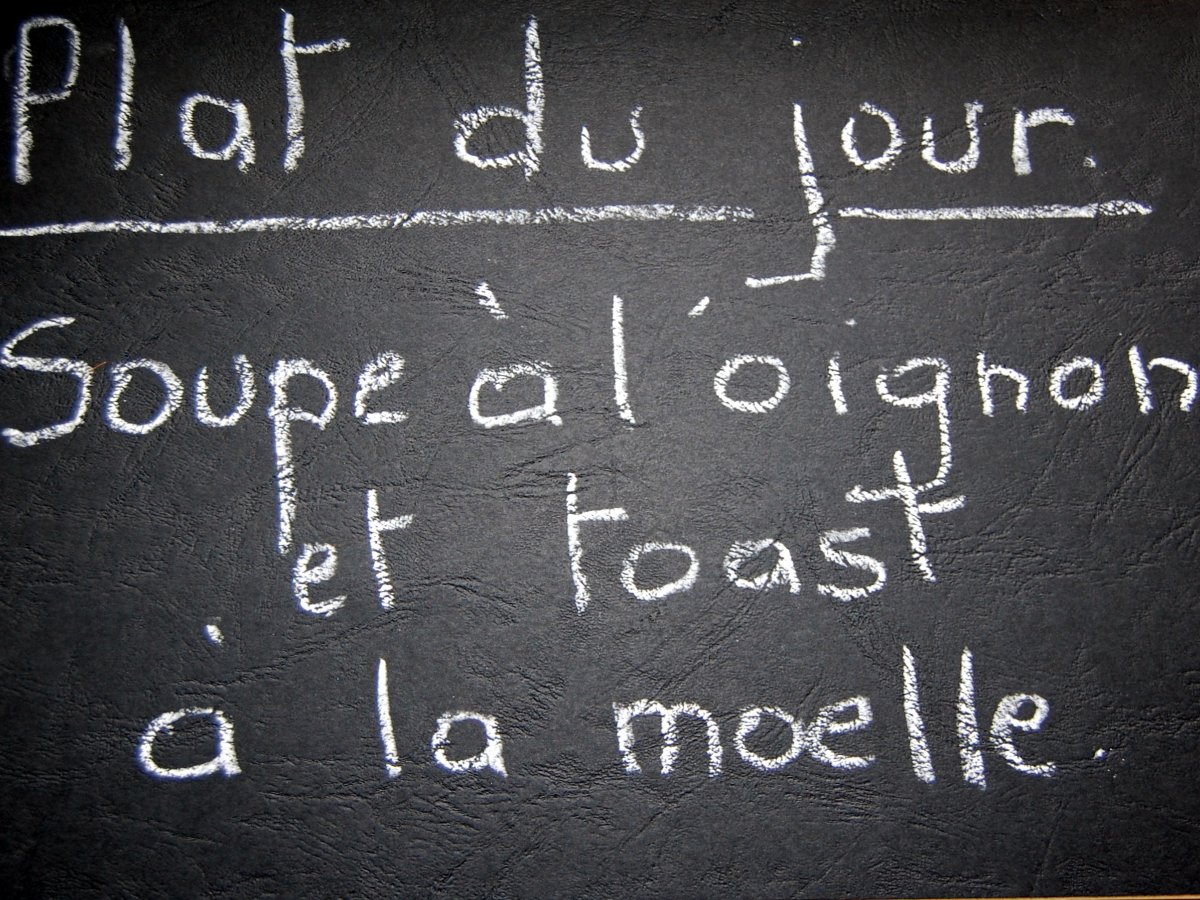 Plat du jour.
Soupe à l'oignon
et toast
à la moelle.